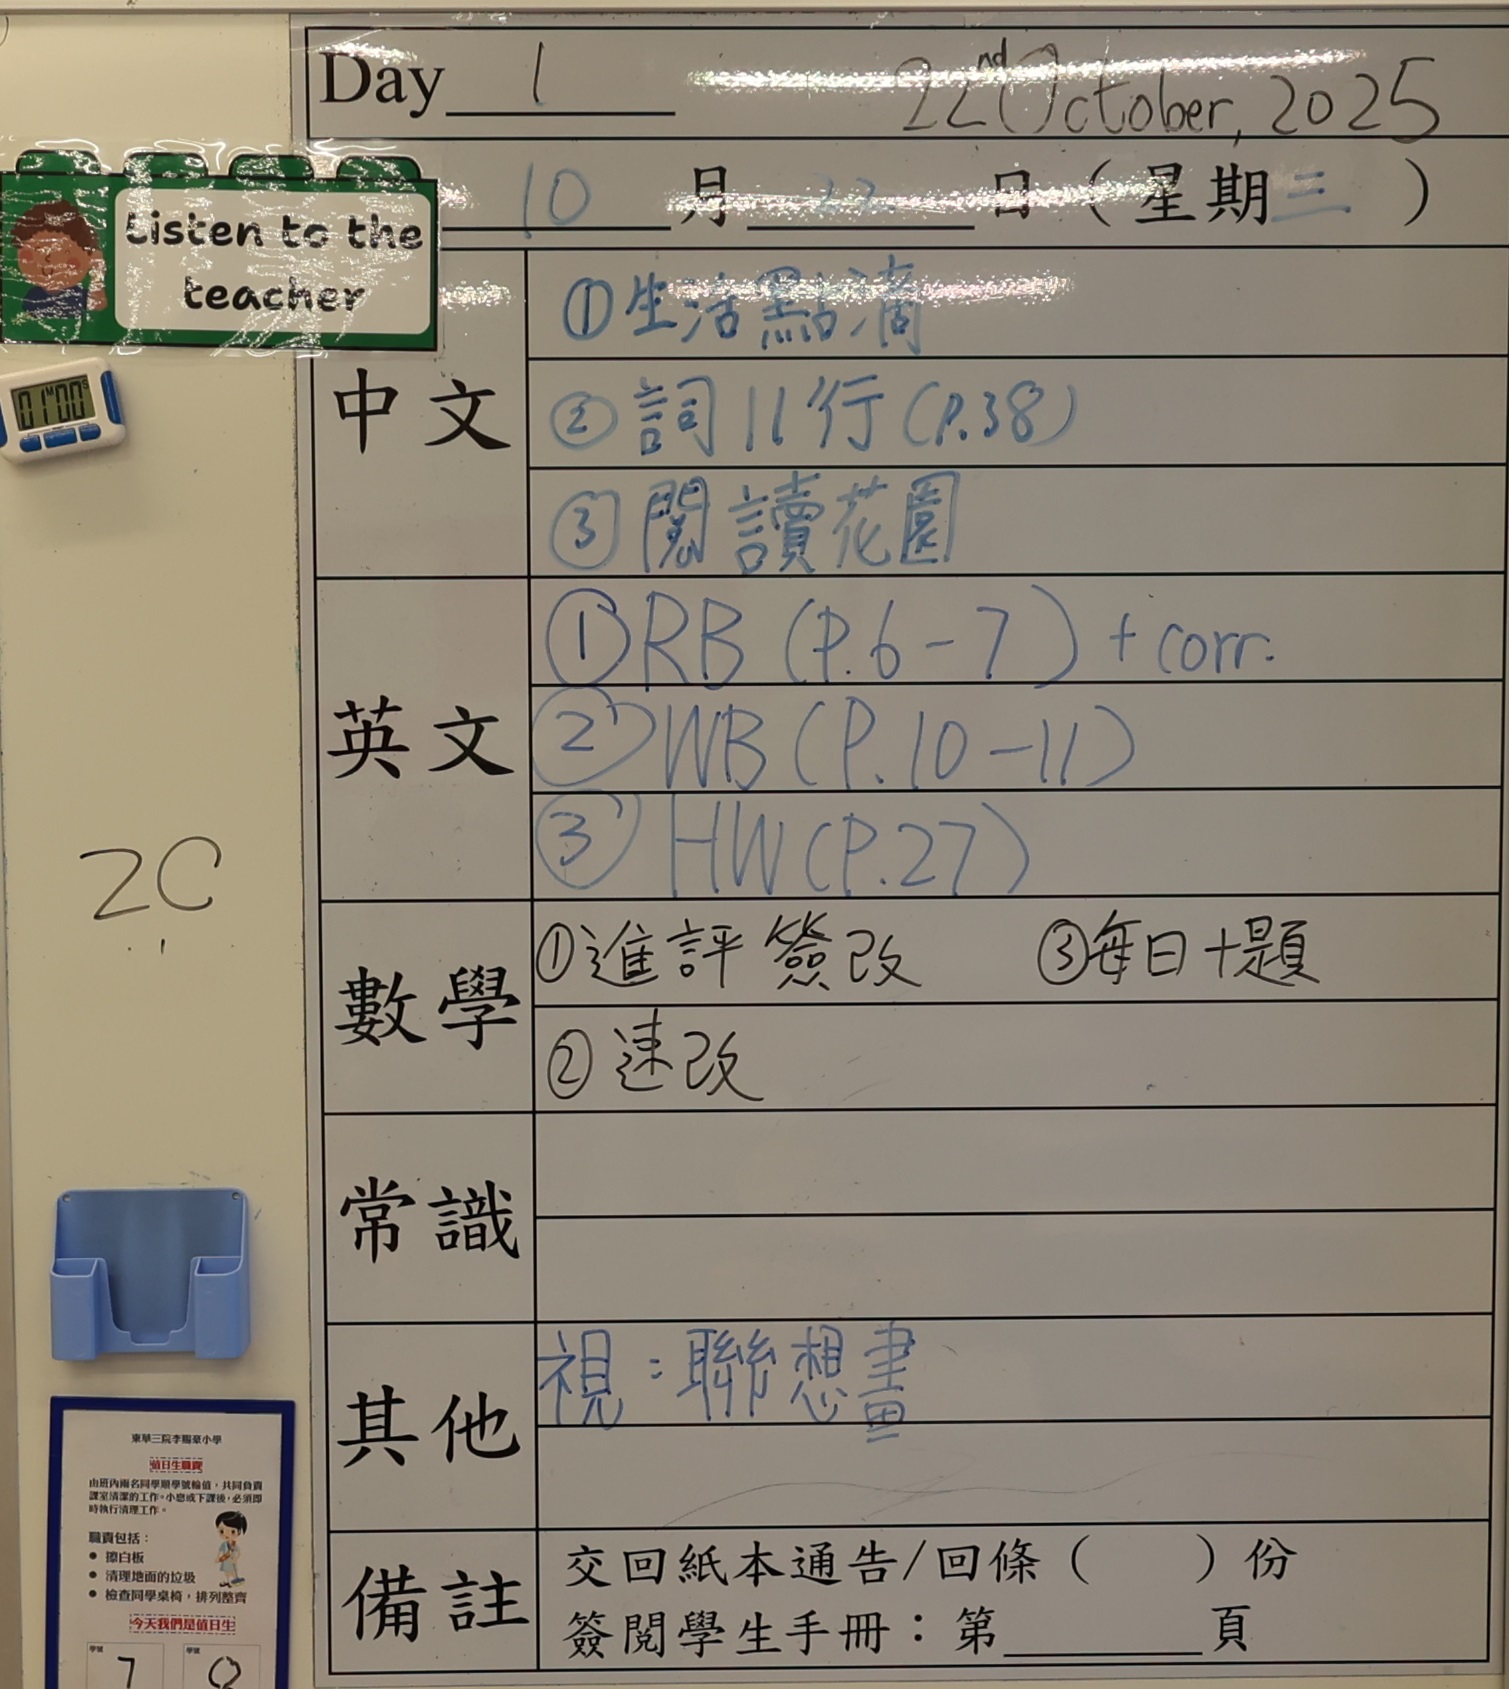 Day 1 22nd October, 2025
10 月 22 日 ( 星期三 )
Listen to the
teacher
中文
①生活點滴
②詞11行(P.38)
③閱讀花園
01 00
英文
①RB (P.6-7) + corr.
②WB (P.10-11)
③HW(P.27)
2C
數學
①進評簽改 ③每日十題
②速改
常識
其他
視：聯想畫
備註
交回紙本通告/回條（ ）份
簽閱學生手冊：第 頁
東華三院李賜豪小學
值日生職責
由班內兩名同學順學號輪值，共同負責
課室清潔的工作。小息或下課後，必須即
時執行清理工作。
職責包括：
• 擦白板
• 清理地面的垃圾
• 檢查同學桌椅，排列整齊
今天我們是值日生
學號 學號
7